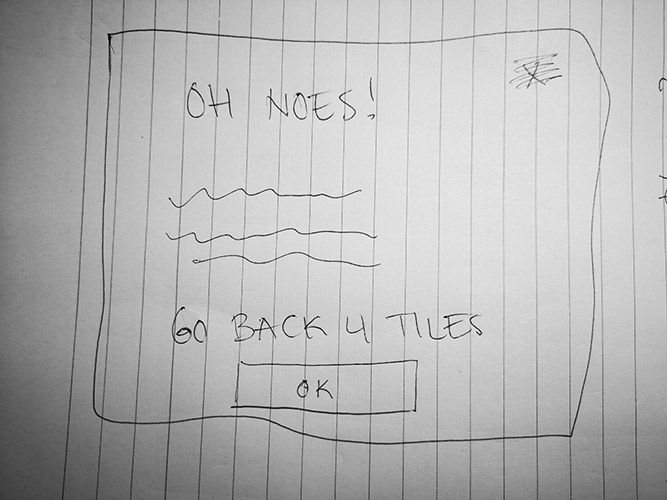 OH NOES!
GO BACK 4 TILES
OK